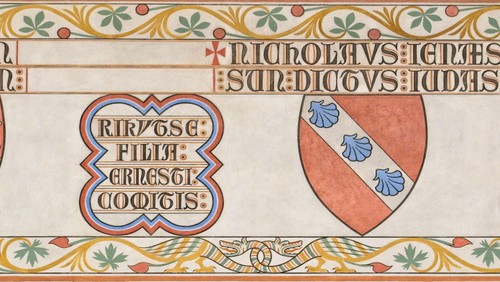 N ✠ NICHOLAVS : IENÆS
N : : SUN : DICTVS : IUDAS
RIKYTSE :
FILIA :
ERNESTI :
COMITIS :